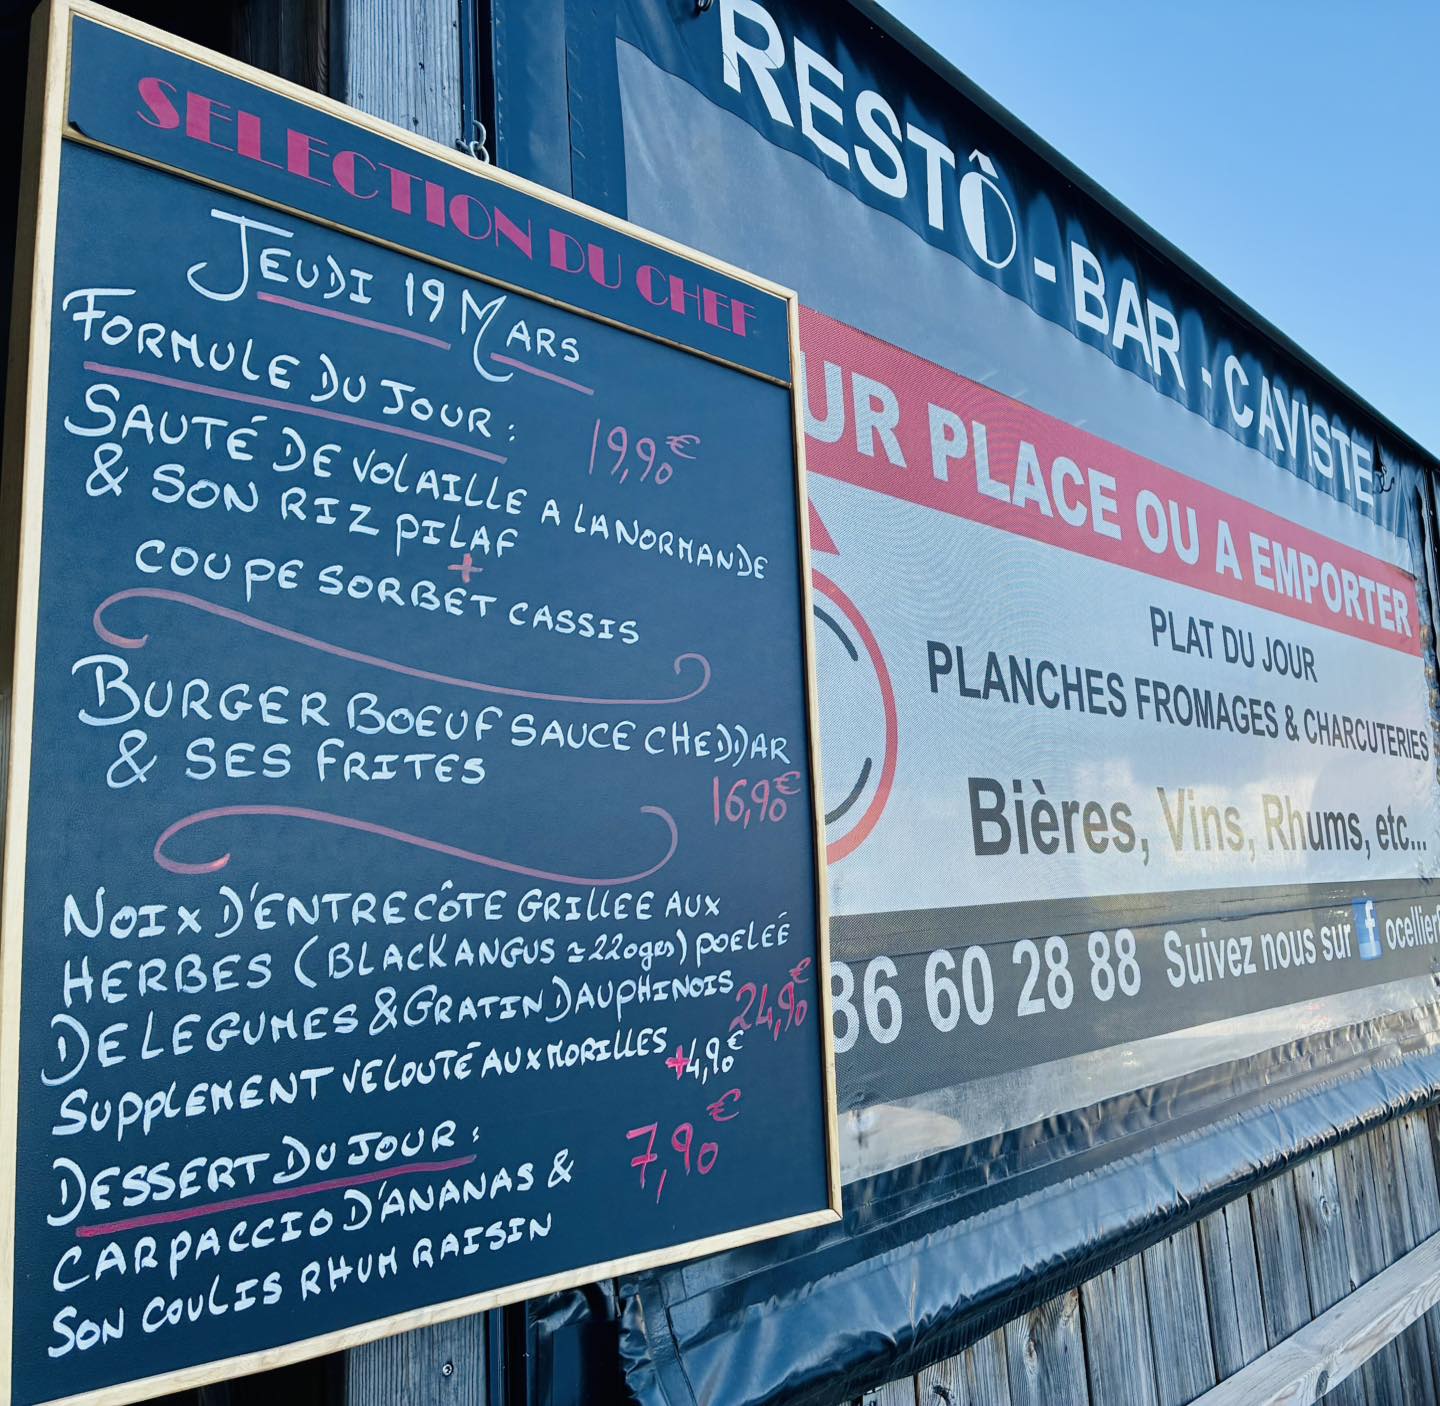 SELECTION DU CHEF
JEUDI 19 MARS
FORMULE DU JOUR :
19,90€
SAUTÉ DE VOLAILLE A LA NORMANDE
& SON RIZ PILAF
+
COUPE SORBET CASSIS
BURGER BOEUF SAUCE CHEDDAR
& SES FRITES
16,90€
NOIX D'ENTRECÔTE GRILLEE AUX
HERBES (BLACK ANGUS ≃220grs) POELÉÉ
DE LEGUMES & GRATIN DAUPHINOIS
24,90€
SUPPLEMENT VELOUTÉ AUX MORILLES
+4,90€
DESSERT DU JOUR :
7,90€
CARPACCIO D'ANANAS &
SON COULIS RHUM RAISIN
RESTÔ - BAR - CAVISTE
UR PLACE OU A EMPORTER
PLAT DU JOUR
PLANCHES FROMAGES & CHARCUTERIES
Bières, Vins, Rhums, etc...
86 60 28 88 Suivez nous sur f ocellier